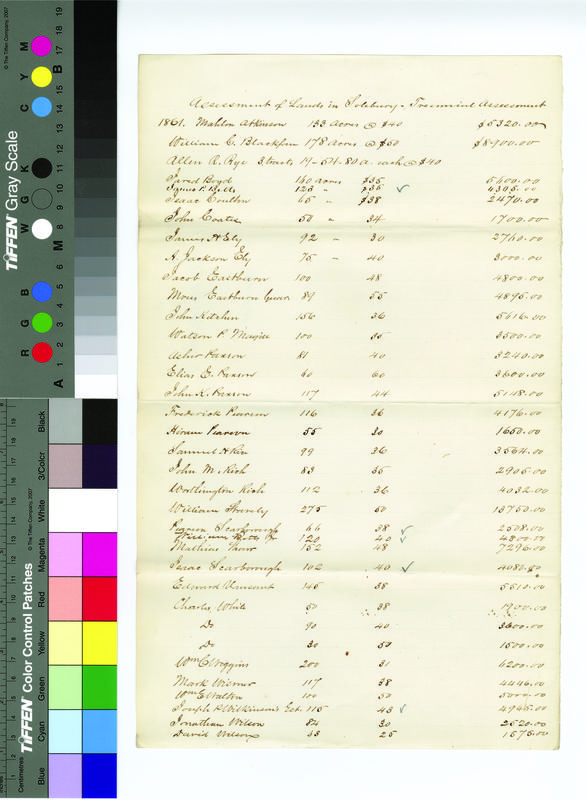 Assessment of Lands in Solebury - Triennial Assessment
1861. Mahlon Atkinson 133 Acres @ $40 $5320.00
William C. Blackfan 178 acres @ $50 $8900.00
Allen R. 3 tracts 19-54-80 a. each @ $40
Jared Boyd 160 acres $35 5600.00
James P. Betts 123 " $35 ✓ 4305.00
Isaac Coulton 65 " $38 2470.00
John Coates 50 " 34 1700.00
James H Ely 92 " 30 2760.00
A. Jackson Ely 75 " 40 3000.00
Jacob Eastburn 100 48 4800.00
Moses Eastburn 89 55 4895.00
John Kitchin 156 36 5616.00
Watson P. Magill 100 35 3500.00
Asher Paxson 81 40 3240.00
Elias E. Paxson 60 60 3600.00
John K. Paxson 117 44 5148.00
Frederick Pearson 116 36 4176.00
Hiram Pearson 55 30 1650.00
Samuel H 99 36 3564.00
John M. Rich 83 35 2905.00
Worthington Rich 112 36 4032.00
William Stavely 275 50 13750.00
Pearson Scarborough 66 38 ✓ 2508.00
William 120 40 ✓ 4800.00
Mathias Shaw 152 48 7296.00
Isaac Scarborough 102 40 ✓ 4080.00
Edward Vansant 145 38 5510.00
Charles White 50 38 1900.00
Do 90 40 3600.00
Do 30 50 1500.00
Wm C Wiggins 200 31 6200.00
Mark Wismer 117 38 4446.00
Wm E Walton 100 50 5000.00
Joseph P Wilkinson's Est. 115 43 ✓ 4945.00
Jonathan Wilson 84 30 2520.00
David Wilson 63 25 1575.00
TIFFEN Gray Scale
© The Tiffen Company, 2007
R G B W G K C Y M
A 1 2 3 4 5 6 M 8 9 10 11 12 13 14 15 B 17 18 19
TIFFEN Color Control Patches
© The Tiffen Company, 2007
Blue Cyan Green Yellow Red Magenta White 3/Color Black
Centimetres